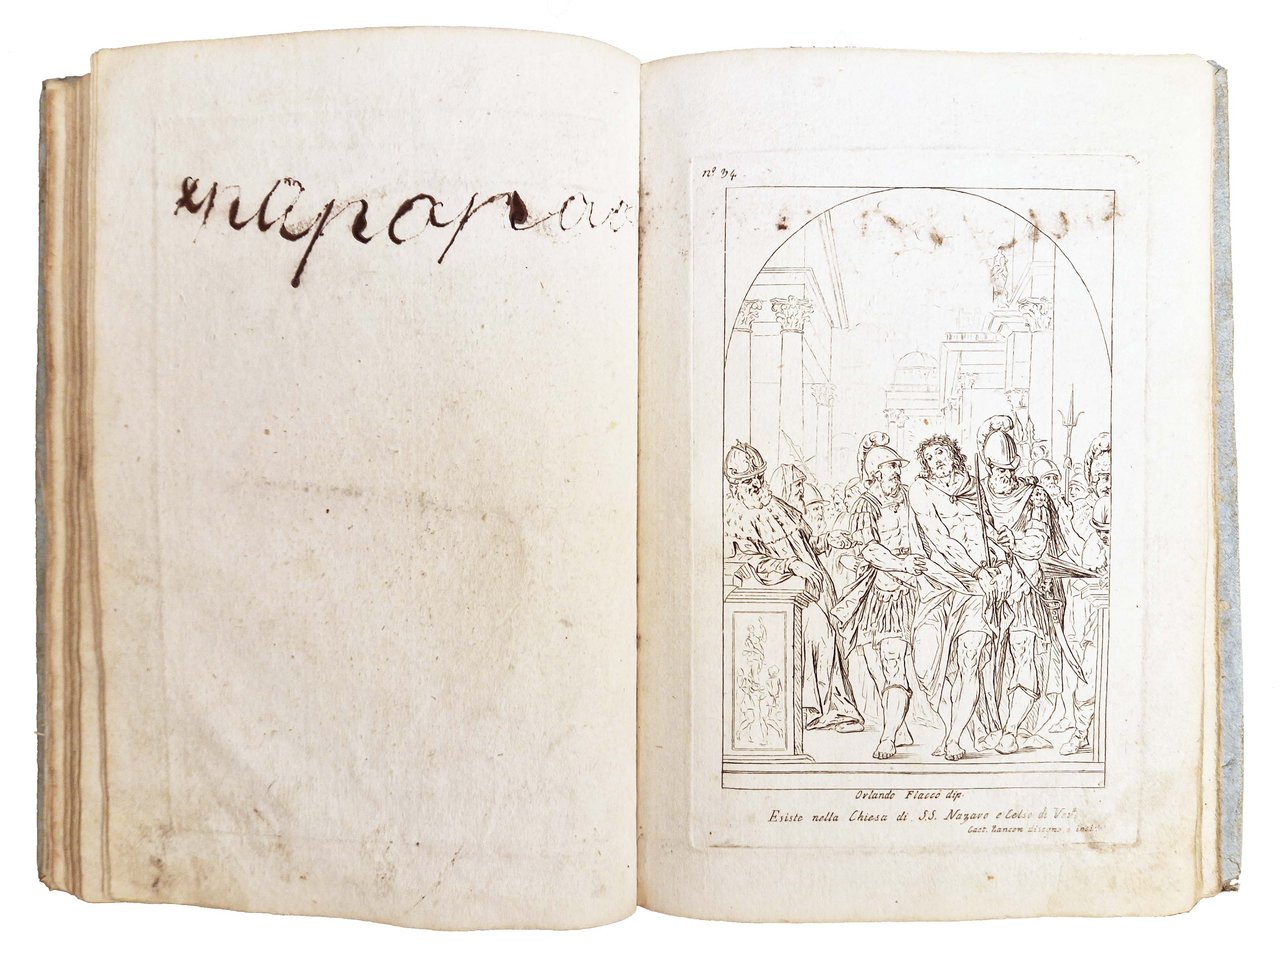 nº 34.
Orlando Flacco dip.
Esiste nella Chiesa di S.S. Nazaro e Celso di Verª
Gaet. Zancon disegno e inci